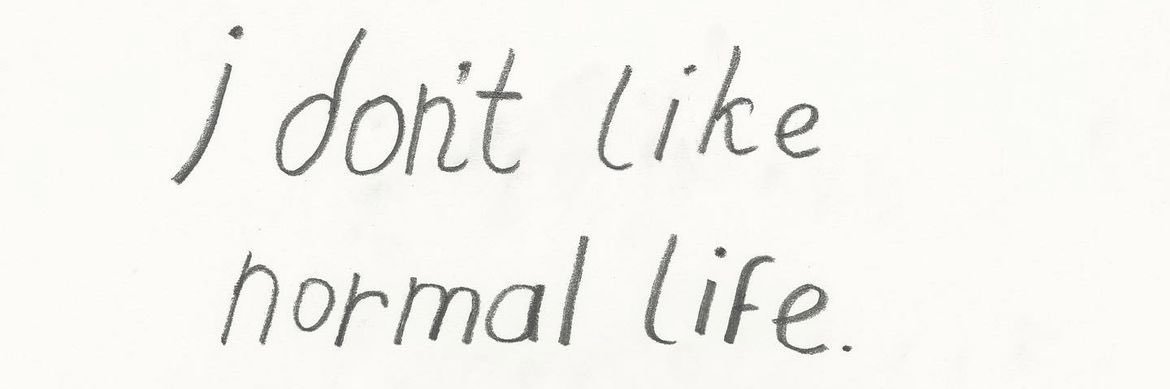 i don't like
normal life.